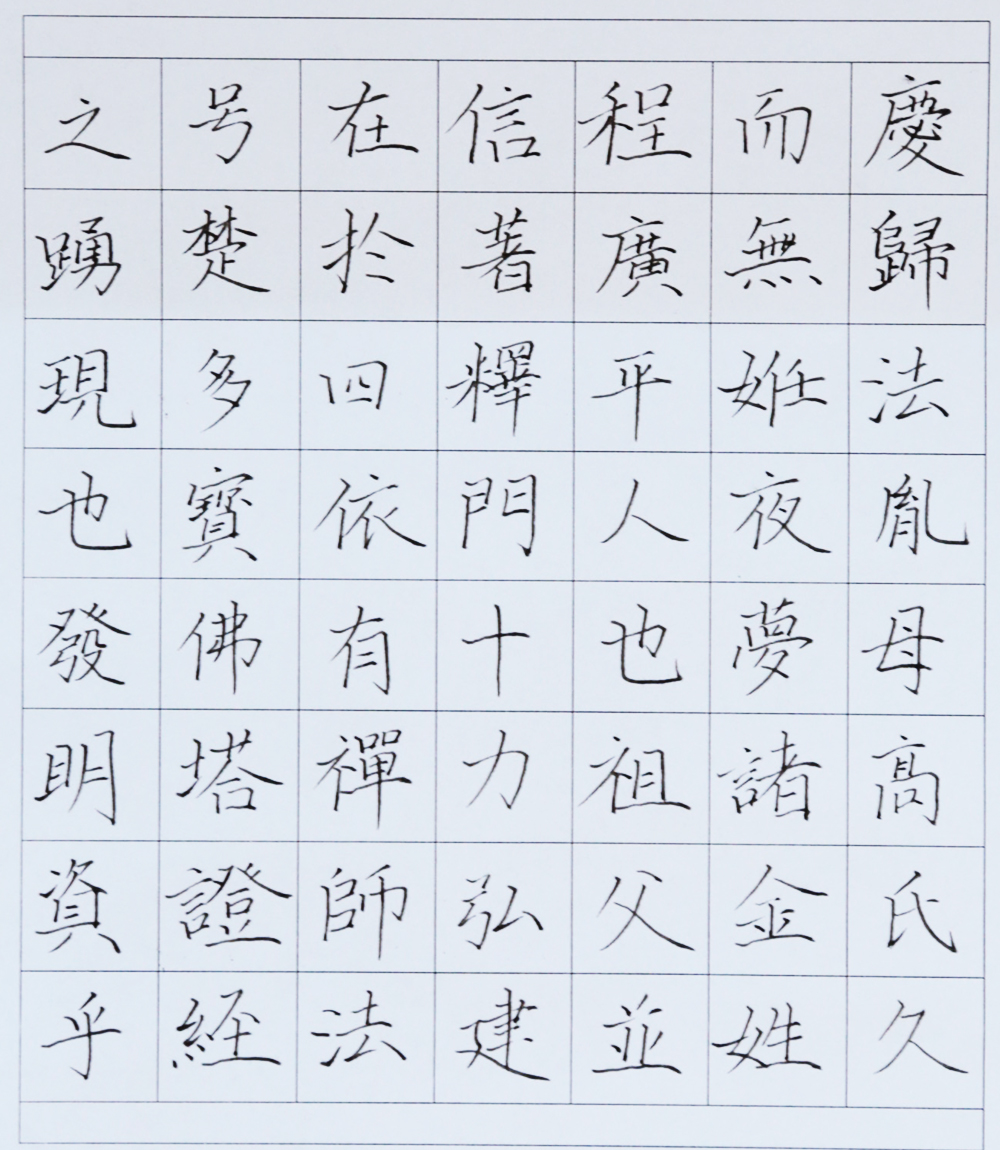 慶歸法胤母高氏久
而無妊夜夢諸金姓
程廣平人也祖父並
信著釋門十力弘建
在扵四依有禪師法
号楚多寶佛塔證經
之踴現也發明資乎